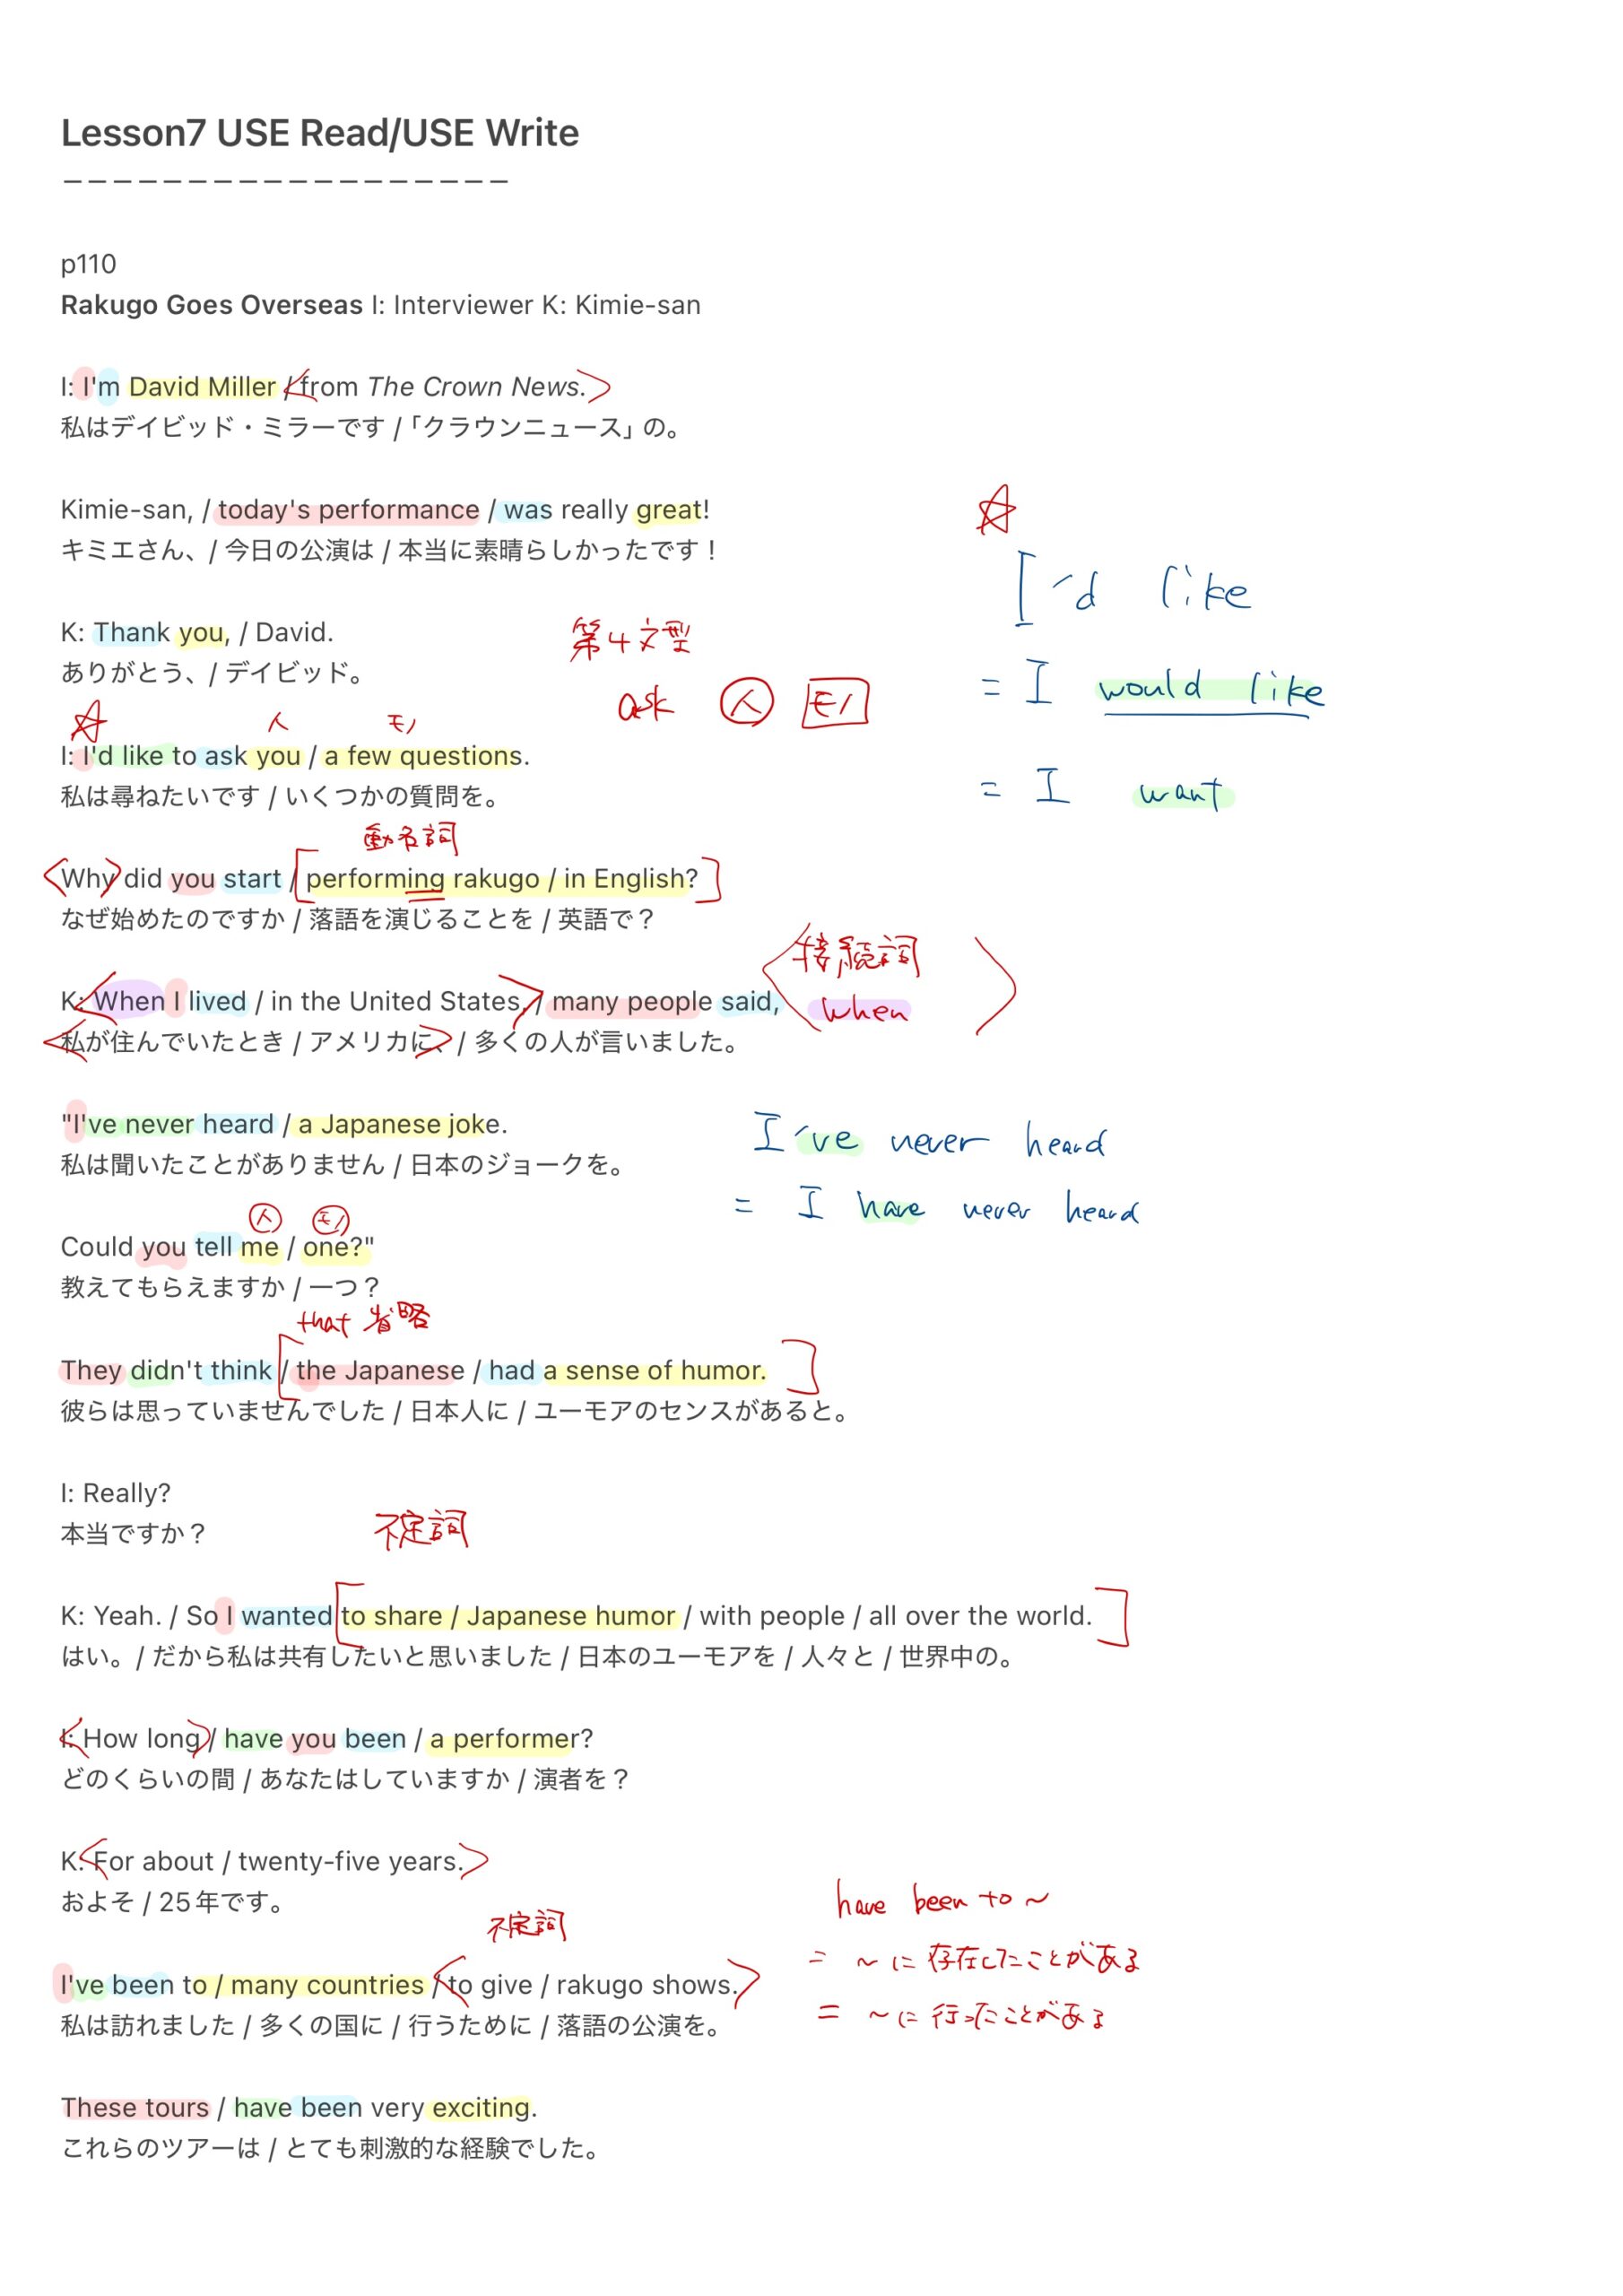 Lesson7 USE Read/USE Write
−−−−−−−−−−−−−−−−−−
p110
Rakugo Goes Overseas I: Interviewer K: Kimie-san
I: I'm David Miller / from The Crown News.
私はデイビッド・ミラーです /「クラウンニュース」の。
Kimie-san, / today's performance / was really great!
キミエさん、/ 今日の公演は / 本当に素晴らしかったです！
☆
I'd like
= I would like
= I want
K: Thank you, / David.
ありがとう、/ デイビッド。
第4文型
ask 人 モノ
☆ 人 モノ
I: I'd like to ask you / a few questions.
私は尋ねたいです / いくつかの質問を。
動名詞
Why did you start / performing rakugo / in English?
なぜ始めたのですか / 落語を演じることを / 英語で？
接続詞
when
K: When I lived / in the United States, / many people said,
私が住んでいたとき / アメリカに、/ 多くの人が言いました。
"I've never heard / a Japanese joke.
私は聞いたことがありません / 日本のジョークを。
I've never heard
= I have never heard
人 モノ
Could you tell me / one?"
教えてもらえますか / 一つ？
that 省略
They didn't think / the Japanese / had a sense of humor.
彼らは思っていませんでした / 日本人に / ユーモアのセンスがあると。
I: Really?
本当ですか？
不定詞
K: Yeah. / So I wanted to share / Japanese humor / with people / all over the world.
はい。/ だから私は共有したいと思いました / 日本のユーモアを / 人々と / 世界中の。
I: How long / have you been / a performer?
どのくらいの間 / あなたはしていますか / 演者を？
K: For about / twenty-five years.
およそ / 25年です。
不定詞
I've been to / many countries / to give / rakugo shows.
私は訪れました / 多くの国に / 行うために / 落語の公演を。
have been to ～
= ～に存在したことがある
= ～に行ったことがある
These tours / have been very exciting.
これらのツアーは / とても刺激的な経験でした。